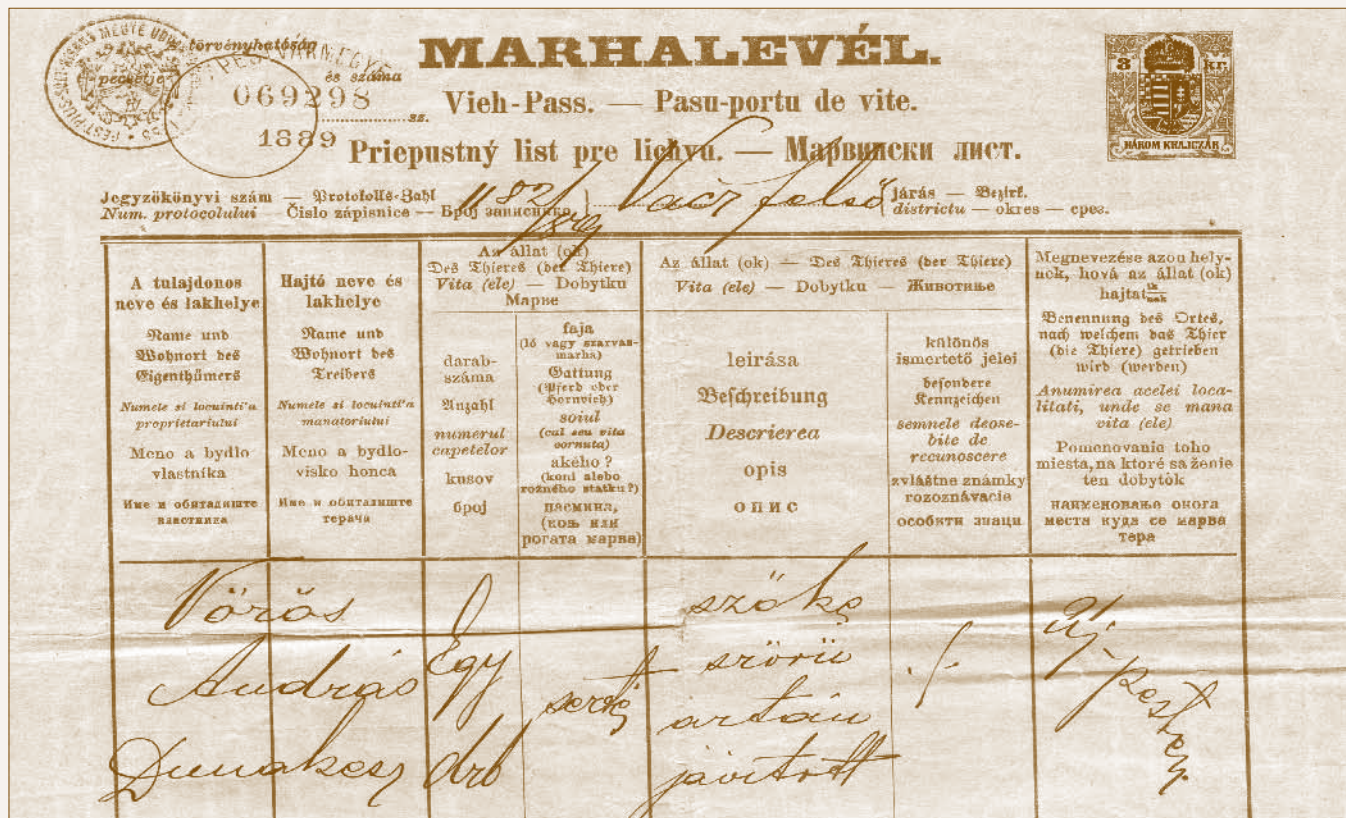 MARHALEVÉL.
törvényhatóság
pecsétje
és száma
069298
sz.
1889
Vieh-Pass. — Pasu-portu de vite.
Priepustný list pre lichvu. — Марвински лист.
3 kr.
HÁROM KRAJCZÁR
Jegyzőkönyvi szám — Protokolls-Zahl
Num. protocolului — Čislo zápisnice — Број записника
1182/889
Vácz felső
járás — Bezirk.
districtu — okres — срез.
A tulajdonos
neve és lakhelye
Name und
Wohnort des
Eigenthümers
Numele si locuinti'a
proprietariului
Meno a bydlo
vlastníka
Име и обиталиште
властника
Hajtó neve és
lakhelye
Name und
Wohnort des
Treibers
Numele si locuinti'a
manatoriului
Meno a bydlo-
visko honca
Име и обиталиште
терача
Az állat (ok)
Des Thieres (der Thiere)
Vita (ele) — Dobytku
Марве
darab-
száma
Anzahl
numerul
capetelor
kusov
број
faja
(ló vagy szarvas-
marha)
Gattung
(Pferd oder
Hornvieh)
soiul
(cal seu vita
cornuta)
akého ?
(koni alebo
rožného statku?)
пасмина,
(коњ или
рогата марва)
Az állat (ok) — Des Thieres (der Thiere)
Vita (ele) — Dobytku — Животиње
leirása
Beschreibung
Descrierea
opis
опис
különös
ismertető jelei
besondere
Kennzeichen
semnele deose-
bite de
recunoscere
zvláštne známky
rozoznávacie
особити знаци
Megnevezése azon hely-
nek, hová az állat (ok)
hajtatik
nak
Benennung des Ortes,
nach welchem das Thier
(die Thiere) getrieben
wird (werden)
Anumirea acelei loca-
litati, unde se mana
vita (ele)
Pomenovania toho
miesta, na ktoré sa ženie
ten dobytók
наименовање онога
места куда се марва
тера
Vörös
András
Dunakesz
Egy
drb
sertés
szőke
szörü
ártán
javitott
./.
Uj-
pestre